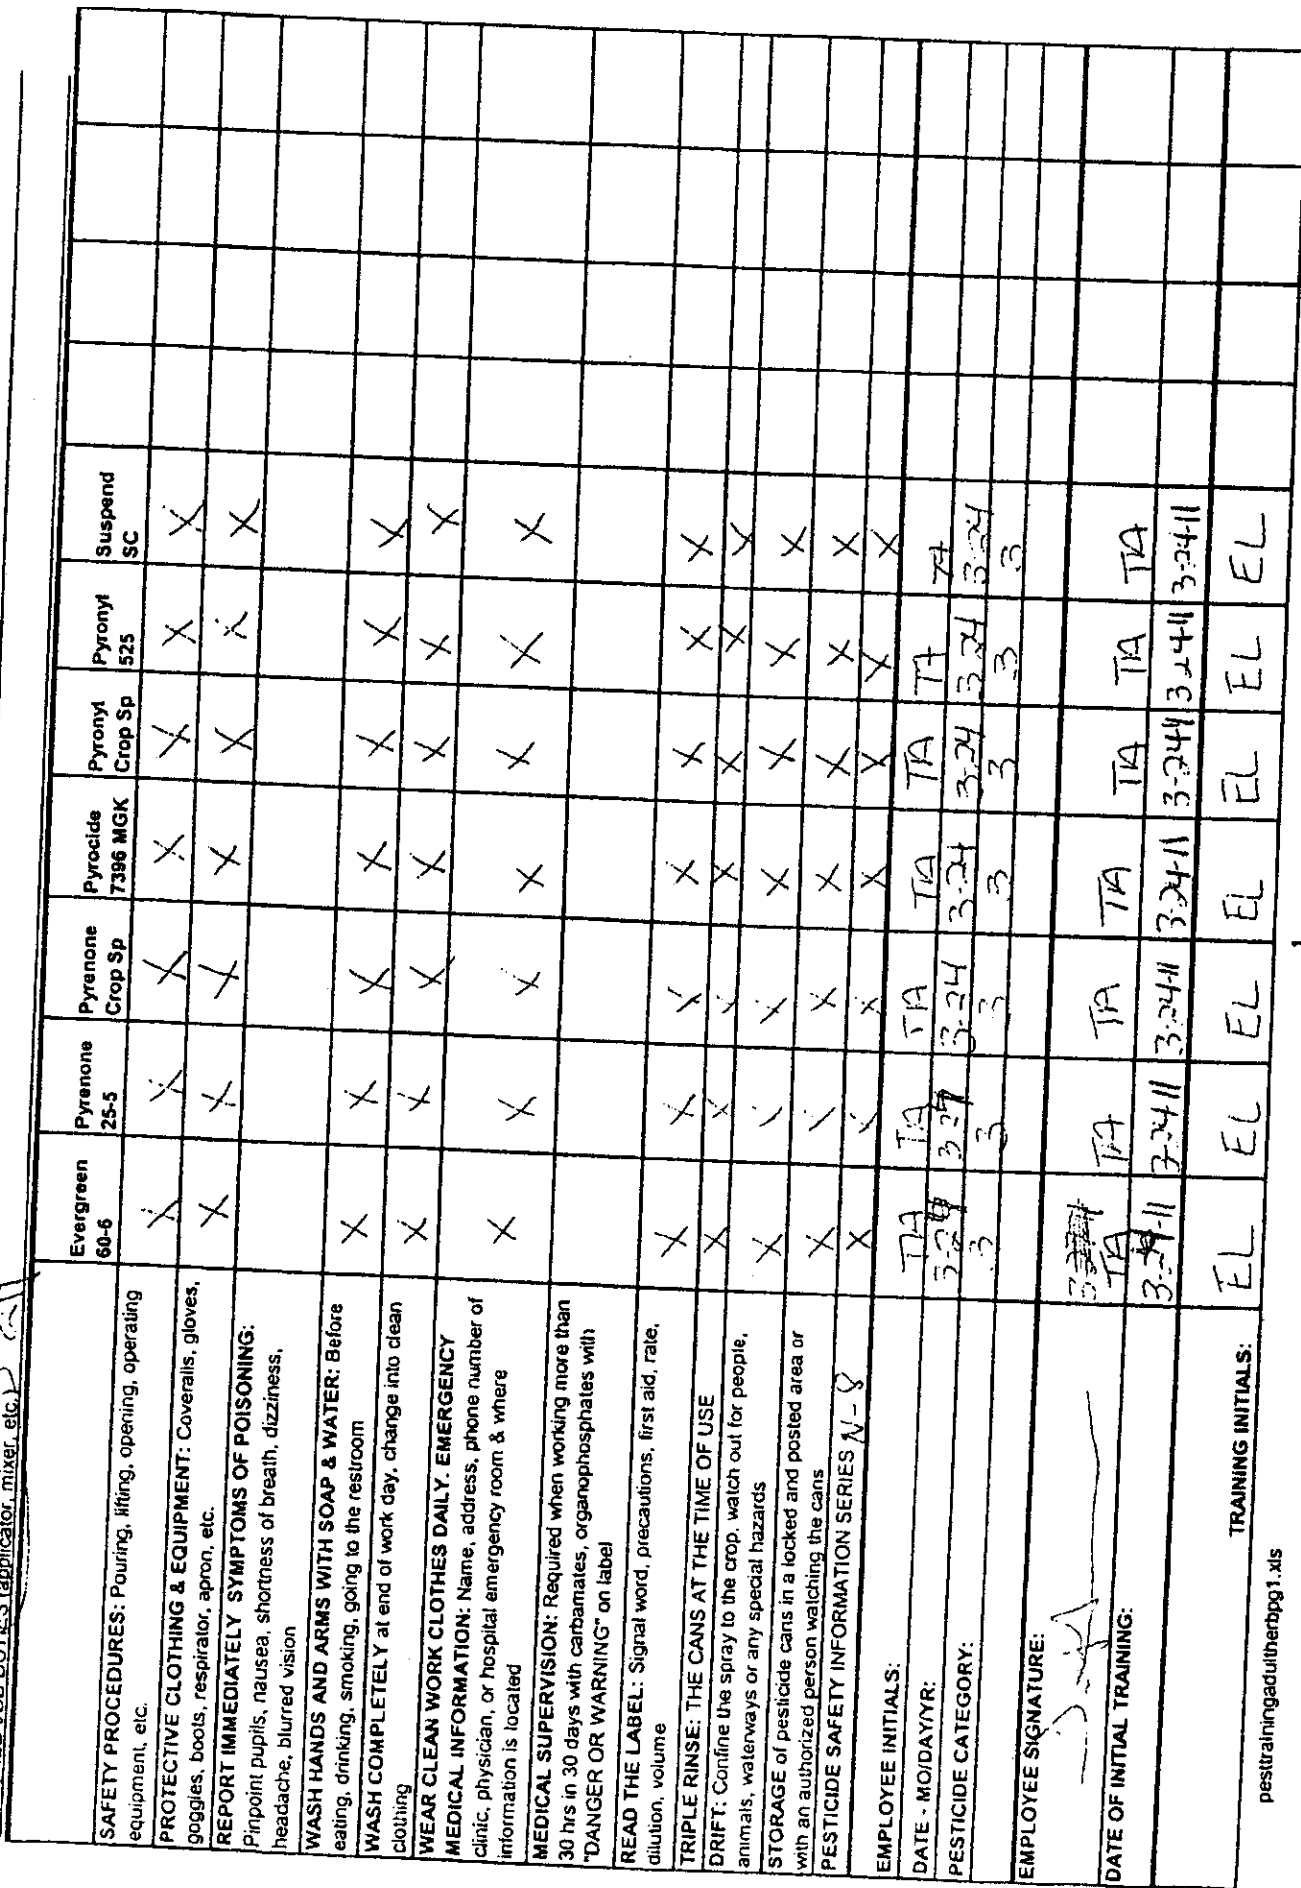 Evergreen 60-6 Pyrenone 25-5 Pyrenone Crop Sp Pyrocide 7396 MGK Pyronyl Crop Sp Pyronyl 525 Suspend SC
SAFETY PROCEDURES: Pouring, lifting, opening, operating
equipment, etc.
X X X X X X X
PROTECTIVE CLOTHING & EQUIPMENT: Coveralls, gloves,
goggles, boots, respirator, apron, etc.
X X X X X X X
REPORT IMMEDIATELY SYMPTOMS OF POISONING:
Pinpoint pupils, nausea, shortness of breath, dizziness,
headache, blurred vision
WASH HANDS AND ARMS WITH SOAP & WATER: Before
eating, drinking, smoking, going to the restroom
X X X X X X X
WASH COMPLETELY at end of work day, change into clean
clothing
X X X X X X X
WEAR CLEAN WORK CLOTHES DAILY. EMERGENCY
MEDICAL INFORMATION: Name, address, phone number of
clinic, physician, or hospital emergency room & where
information is located
X X X X X X X
MEDICAL SUPERVISION: Required when working more than
30 hrs in 30 days with carbamates, organophosphates with
"DANGER OR WARNING" on label
READ THE LABEL: Signal word, precautions, first aid, rate,
dilution, volume
X X X X X X X
TRIPLE RINSE: THE CANS AT THE TIME OF USE
X X X X X X X
DRIFT: Confine the spray to the crop, watch out for people,
animals, waterways or any special hazards
X X X X X X X
STORAGE of pesticide cans in a locked and posted area or
with an authorized person watching the cans
X X X X X X X
PESTICIDE SAFETY INFORMATION SERIES N-8
X X X X X X X
EMPLOYEE INITIALS: TA TA TA TA TA TA TA
DATE - MO/DAY/YR: 3-24 3-24 3-24 3-24 3-24 3-24 3-24
PESTICIDE CATEGORY: 3 3 3 3 3 3 3
EMPLOYEE SIGNATURE:
TA TA TA TA TA TA TA
DATE OF INITIAL TRAINING: 3-24-11 3-24-11 3-24-11 3-24-11 3-24-11 3-24-11 3-24-11
TRAINING INITIALS: EL EL EL EL EL EL EL
pestrainingadultherbpg1.xls
1